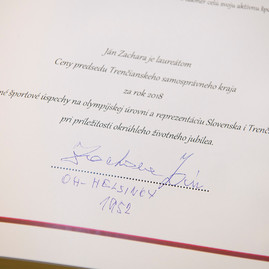 celú moju aktívnu špo
Ján Zachara je laureátom
Ceny predsedu Trenčianskeho samosprávneho kraja
za rok 2018
né športové úspechy na olympijskej úrovni a reprezentáciu Slovenska i Trenč
pri príležitosti okrúhleho životného jubilea.
Zachara Ján
OH-HELSINKY
1952